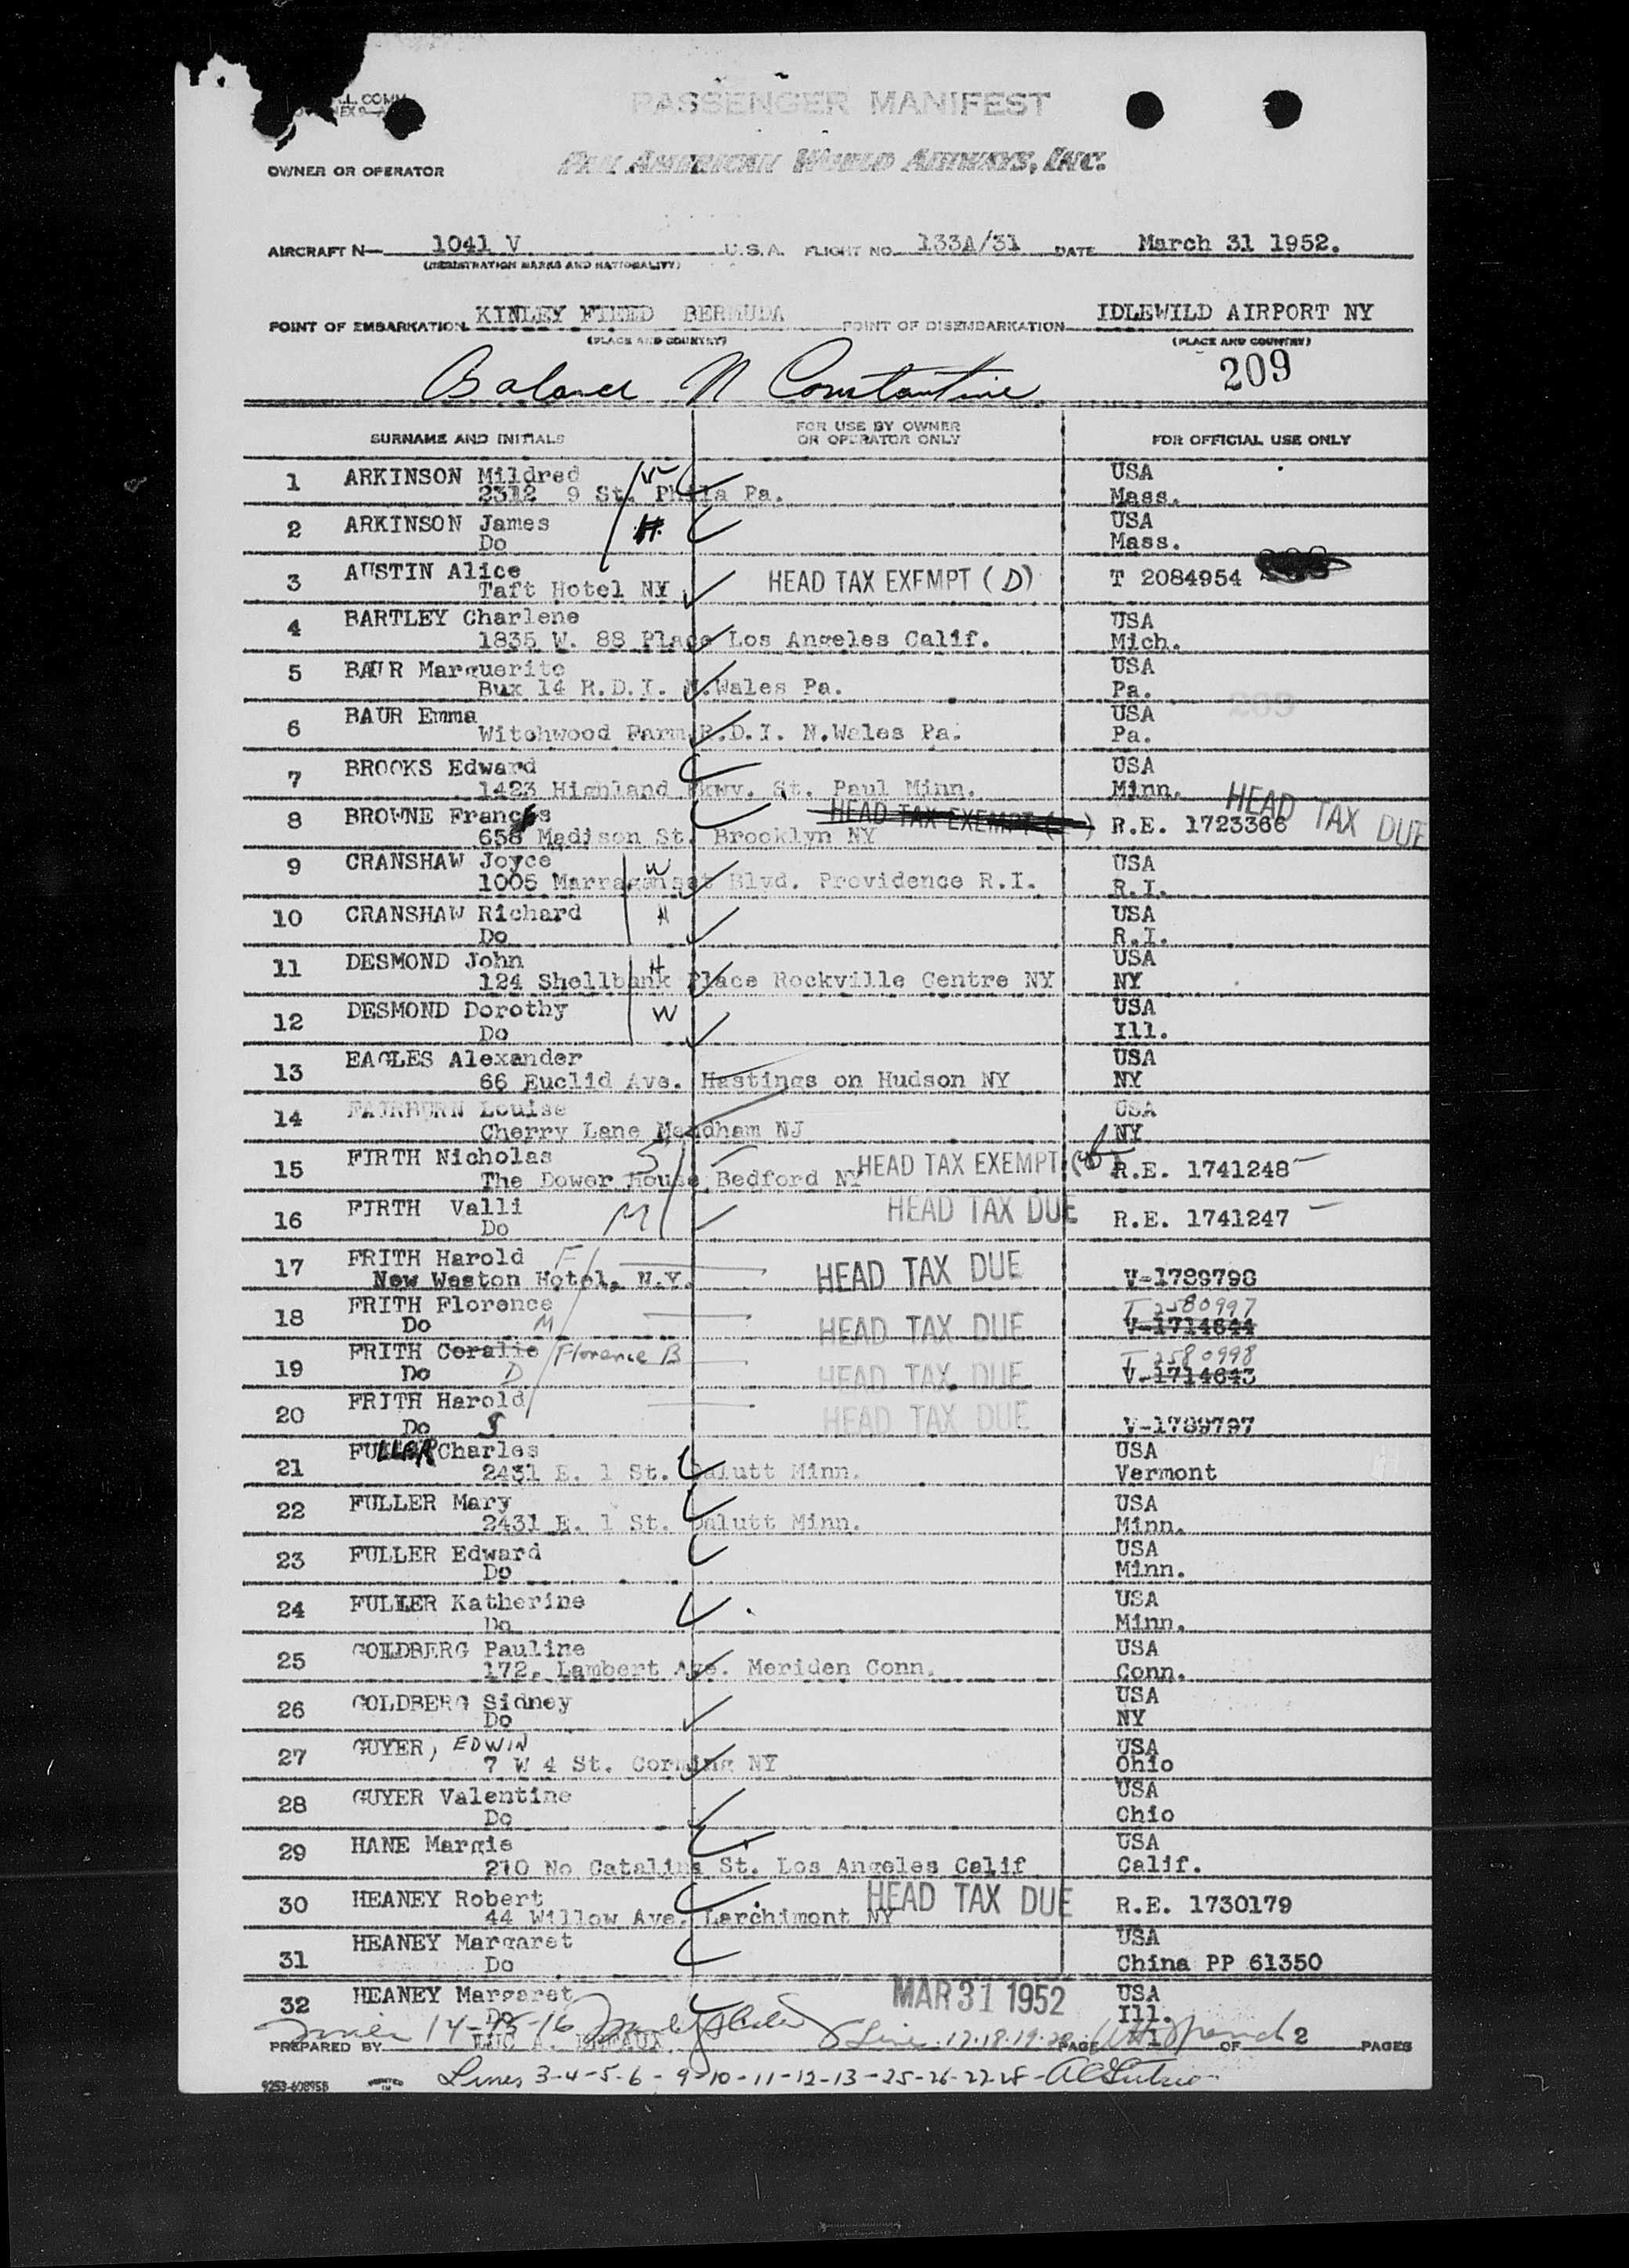 PASSENGER MANIFEST
OWNER OR OPERATOR PAN AMERICAN WORLD AIRWAYS, INC.
AIRCRAFT N— 1041 V U.S.A. FLIGHT NO. 133A/31 DATE March 31 1952.
(REGISTRATION MARKS AND NATIONALITY)
POINT OF EMBARKATION KINLEY FIEED BERMUDA POINT OF DISEMBARKATION IDLEWILD AIRPORT NY
(PLACE AND COUNTRY) (PLACE AND COUNTRY)
Balance N Constantine 209
SURNAME AND INITIALS FOR USE BY OWNER OR OPERATOR ONLY FOR OFFICIAL USE ONLY
1 ARKINSON Mildred W USA
2312 9 St. Phila Pa. Mass.
2 ARKINSON James H. USA
Do Mass.
3 AUSTIN Alice HEAD TAX EXEMPT (D) T 2084954
Taft Hotel NY
4 BARTLEY Charlene USA
1835 W. 88 Place Los Angeles Calif. Mich.
5 BAUR Marguerite USA
Bux 14 R.D.I. N.Wales Pa. Pa.
209
6 BAUR Emma USA
Witchwood Farm R.D.I. N.Wales Pa. Pa.
7 BROOKS Edward USA
1423 Highland Pkwy. St. Paul Minn. Minn.
8 BROWNE Frances HEAD TAX EXEMPT ( ) R.E. 1723366 HEAD TAX DUE
658 Madison St. Brooklyn NY
9 CRANSHAW Joyce W USA
1005 Marraganset Blvd. Providence R.I. R.I.
10 CRANSHAW Richard H USA
Do R.I.
11 DESMOND John H USA
124 Shellbank Place Rockville Centre NY NY
12 DESMOND Dorothy W USA
Do Ill.
13 EAGLES Alexander USA
66 Euclid Ave. Hastings on Hudson NY NY
14 FAIRBURN Louise USA
Cherry Lane Mendham NJ NY
15 FIRTH Nicholas S HEAD TAX EXEMPT R.E. 1741248
The Dower House Bedford NY
16 FIRTH Valli M HEAD TAX DUE R.E. 1741247
Do
17 FRITH Harold F HEAD TAX DUE
New Weston Hotel, N.Y. V-1789798
18 FRITH Florence M HEAD TAX DUE T 2580997
Do V-1714644
19 FRITH Coralie Florence B HEAD TAX DUE T 2580998
Do D V-1714643
20 FRITH Harold HEAD TAX DUE
Do S V-1789797
21 FULLER Charles USA
2431 E. 1 St. Dalutt Minn. Vermont
22 FULLER Mary USA
2431 E. 1 St. Dalutt Minn. Minn.
23 FULLER Edward USA
Do Minn.
24 FULLER Katherine USA
Do Minn.
25 GOLDBERG Pauline USA
172, Lambert Ave. Meriden Conn. Conn.
26 GOLDBERG Sidney USA
Do NY
27 GUYER, EDWIN USA
7 W 4 St. Corning NY Ohio
28 GUYER Valentine USA
Do Ohio
29 HANE Margie USA
210 No Catalina St. Los Angeles Calif Calif.
30 HEANEY Robert HEAD TAX DUE R.E. 1730179
44 Willow Ave. Larchimont NY
31 HEANEY Margaret USA
Do China PP 61350
32 HEANEY Margaret MAR 31 1952 USA
Do Ill.
14-15-16 Line 17-18-19-20
PREPARED BY LUC A. PAGE 1 OF 2 PAGES
Lines 3-4-5-6-9-10-11-12-13-25-26-27-28-
9253-608955 PRINTED IN